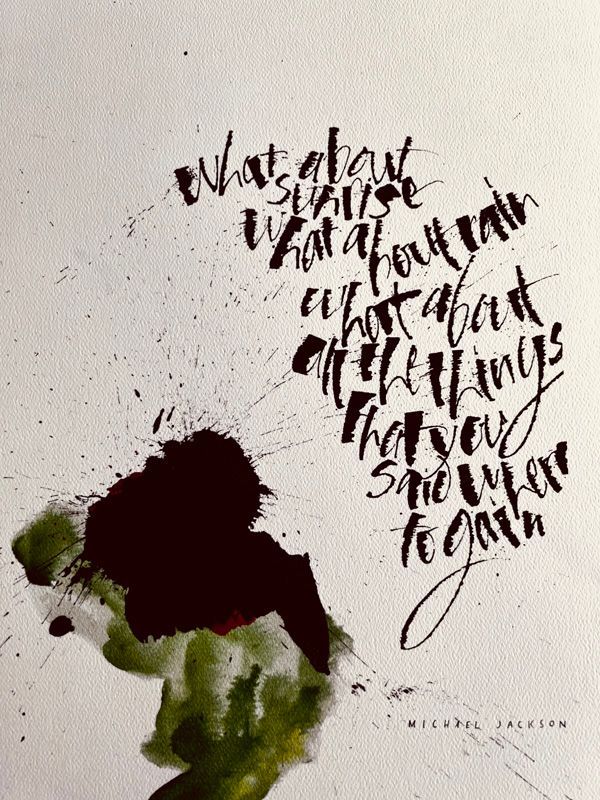 What about
sunrise
What about rain
what about
all the things
that you
said where
to gain
MICHAEL JACKSON